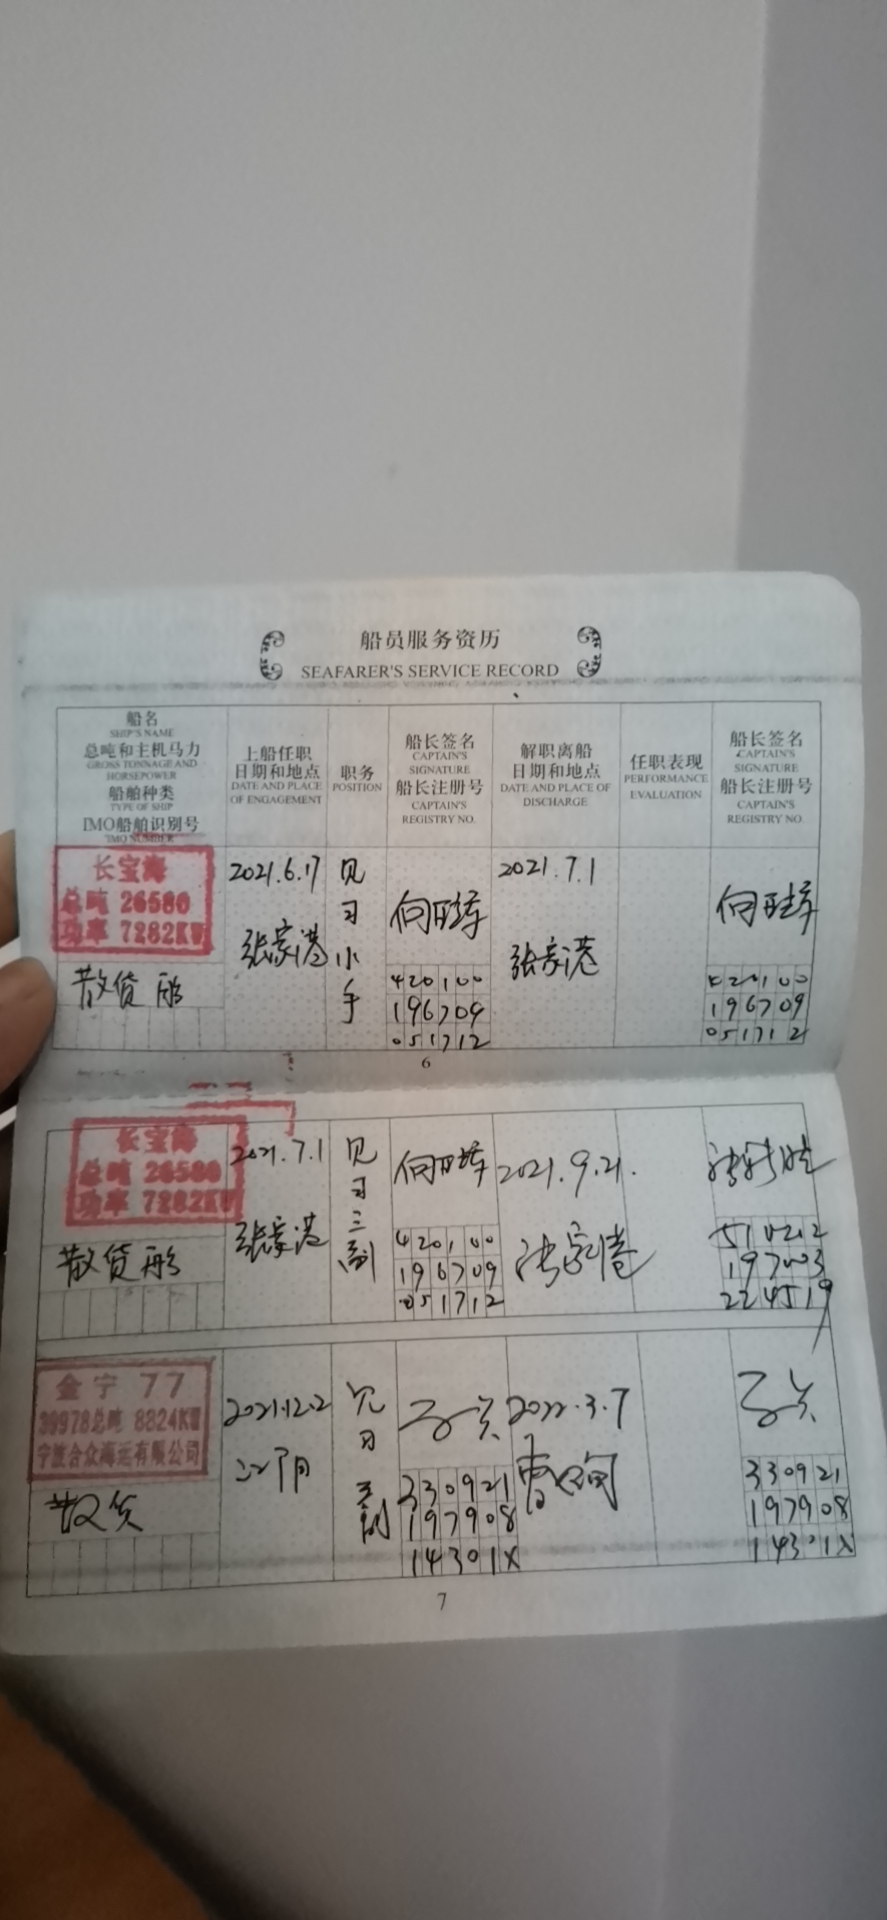 船员服务资历
SEAFARER'S SERVICE RECORD
船名
SHIP'S NAME
总吨和主机马力
GROSS TONNAGE AND
HORSEPOWER
船舶种类
TYPE OF SHIP
IMO船舶识别号
IMO NUMBER
上船任职
日期和地点
DATE AND PLACE
OF ENGAGEMENT
职务
POSITION
船长签名
CAPTAIN'S
SIGNATURE
船长注册号
CAPTAIN'S
REGISTRY NO.
解职离船
日期和地点
DATE AND PLACE OF
DISCHARGE
任职表现
PERFORMANCE
EVALUATION
船长签名
CAPTAIN'S
SIGNATURE
船长注册号
CAPTAIN'S
REGISTRY NO.
长宝海
总吨 26580
功率 7282KW
散货船
2021.6.17
张家港
见习水手
420100
196709
051712
2021.7.1
张家港
420100
196709
051712
6
长宝海
总吨 26580
功率 7282KW
散货船
2021.7.1
张家港
见习三副
420100
196709
051712
2021.9.21.
张家港
510212
197003
224519
金宁 77
39978总吨 8824KW
宁波合众海运有限公司
散货
2021.12.2
见习三副
330921
197908
14301X
2022.3.7
330921
197908
14301X
7